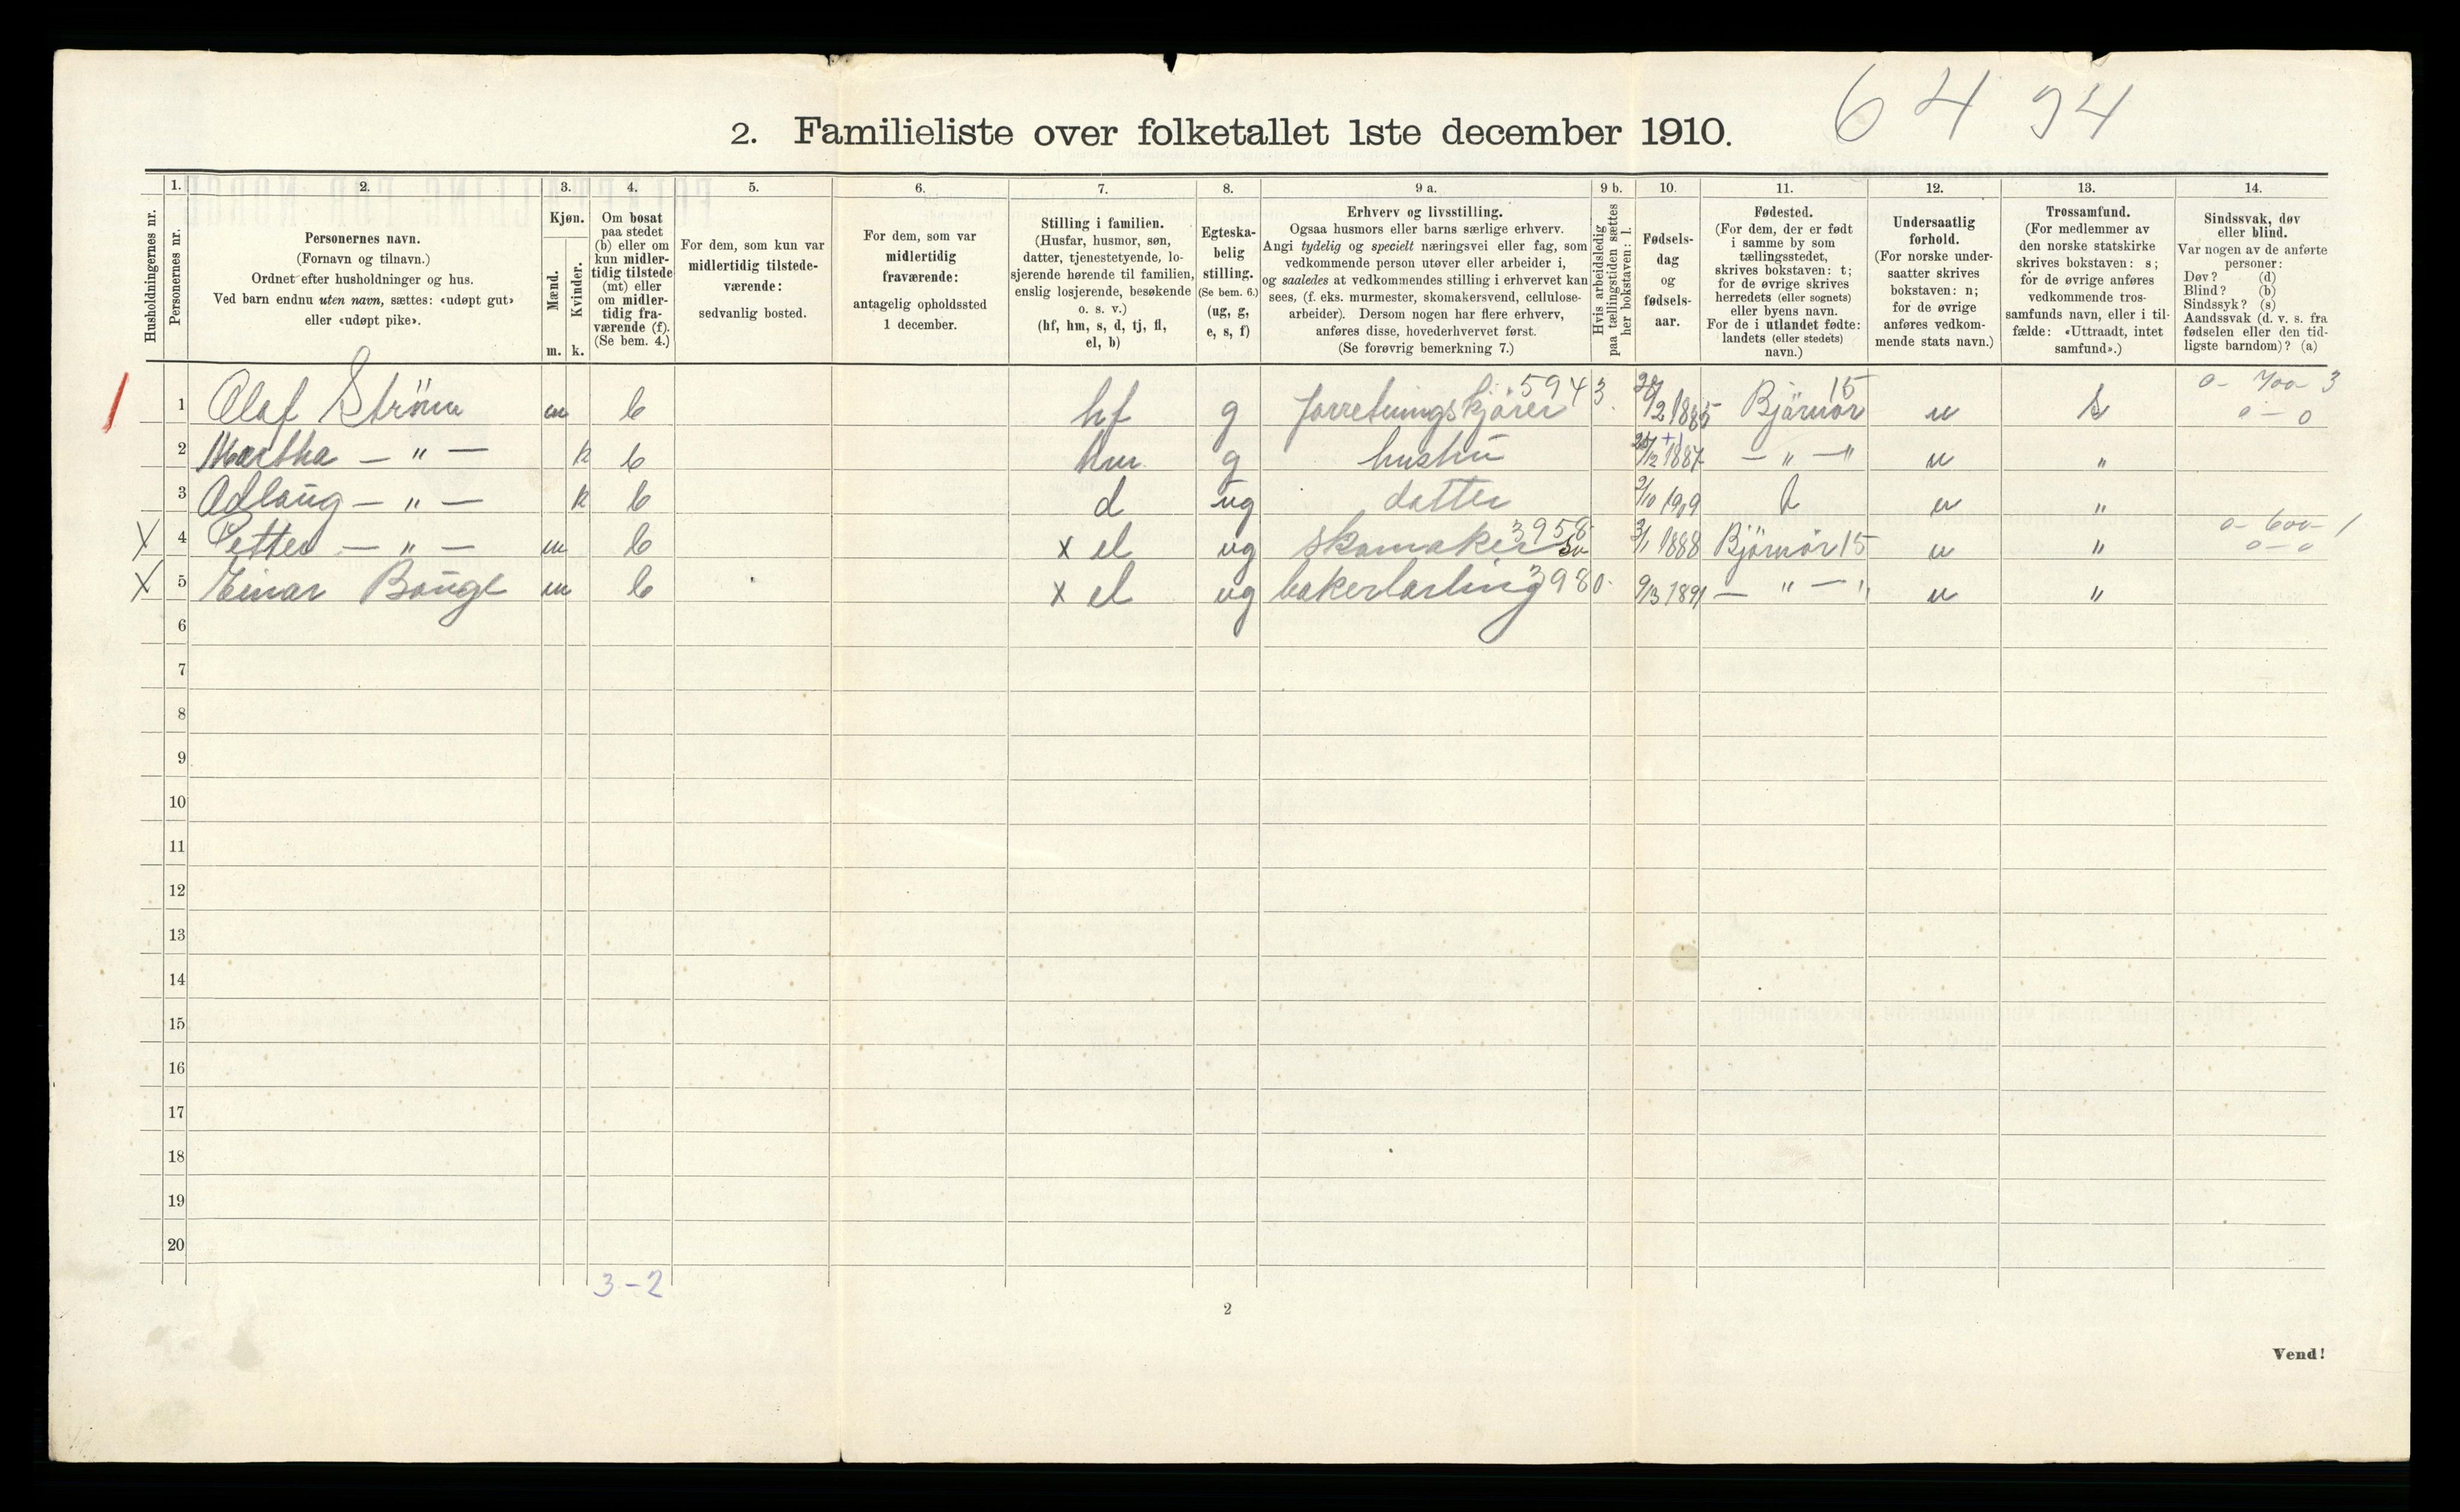 6 4 94
2. Familieliste over folketallet 1ste december 1910.
Husholdningernes nr.
1.
Personernes nr.
2.
Personernes navn.
(Fornavn og tilnavn.)
Ordnet efter husholdninger og hus.
Ved barn endnu uten navn, sættes: «udøpt gut»
eller «udøpt pike».
3.
Kjøn.
Mænd.
Kvinder.
m. k.
4.
Om bosat
paa stedet
(b) eller om
kun midler-
tidig tilstede
(mt) eller
om midler-
tidig fra-
værende (f).
(Se bem. 4.)
5.
For dem, som kun var
midlertidig tilstede-
værende:
sedvanlig bosted.
6.
For dem, som var
midlertidig
fraværende:
antagelig opholdssted
1 december.
7.
Stilling i familien.
(Husfar, husmor, søn,
datter, tjenestetyende, lo-
sjerende hørende til familien,
enslig losjerende, besøkende
o. s. v.)
(hf, hm, s, d, tj, fl,
el, b)
8.
Egteska-
belig
stilling.
(Se bem. 6.)
(ug, g,
e, s, f)
9 a.
Erhverv og livsstilling.
Ogsaa husmors eller barns særlige erhverv.
Angi tydelig og specielt næringsvei eller fag, som
vedkommende person utøver eller arbeider i,
og saaledes at vedkommendes stilling i erhvervet kan
sees, (f. eks. murmester, skomakersvend, cellulose-
arbeider). Dersom nogen har flere erhverv,
anføres disse, hovederhvervet først.
(Se forøvrig bemerkning 7.)
9 b.
Hvis arbeidsledig
paa tællingstiden sættes
her bokstaven: l.
10.
Fødsels-
dag
og
fødsels-
aar.
11.
Fødested.
(For dem, der er født
i samme by som
tællingsstedet,
skrives bokstaven: t;
for de øvrige skrives
herredets (eller sognets)
eller byens navn.
For de i utlandet fødte:
landets (eller stedets)
navn.)
12.
Undersaatlig
forhold.
(For norske under-
saatter skrives
bokstaven: n;
for de øvrige
anføres vedkom-
mende stats navn.)
13.
Trossamfund.
(For medlemmer av
den norske statskirke
skrives bokstaven: s;
for de øvrige anføres
vedkommende tros-
samfunds navn, eller i til-
fælde: «Uttraadt, intet
samfund».)
14.
Sindssvak, døv
eller blind.
Var nogen av de anførte
personer:
Døv? (d)
Blind? (b)
Sindssyk? (s)
Aandssvak (d. v. s. fra
fødselen eller den tid-
ligste barndom)? (a)
1 Olaf Ström m b hf g forretningskjörer 5943 2 1885 Björnör 15 n s 0- 700- 3 0-0
2 Martha — " — k b hm g hustru /12 1887 — " — " n "
3 Adlaug — " — k b d ug datter 2/10 1909 t n "
X 4 Petter — " — m b x el ug skomaker sv 3958 3/1 1888 Björnör 15 n " 0- 600- 1 0-0
X 5 Einar Bauge m b x el ug bakerlærling 3980 9/3 1891 — " — " n "
6
7
8
9
10
11
12
13
14
15
16
17
18
19
20
3-2
2
Vend!